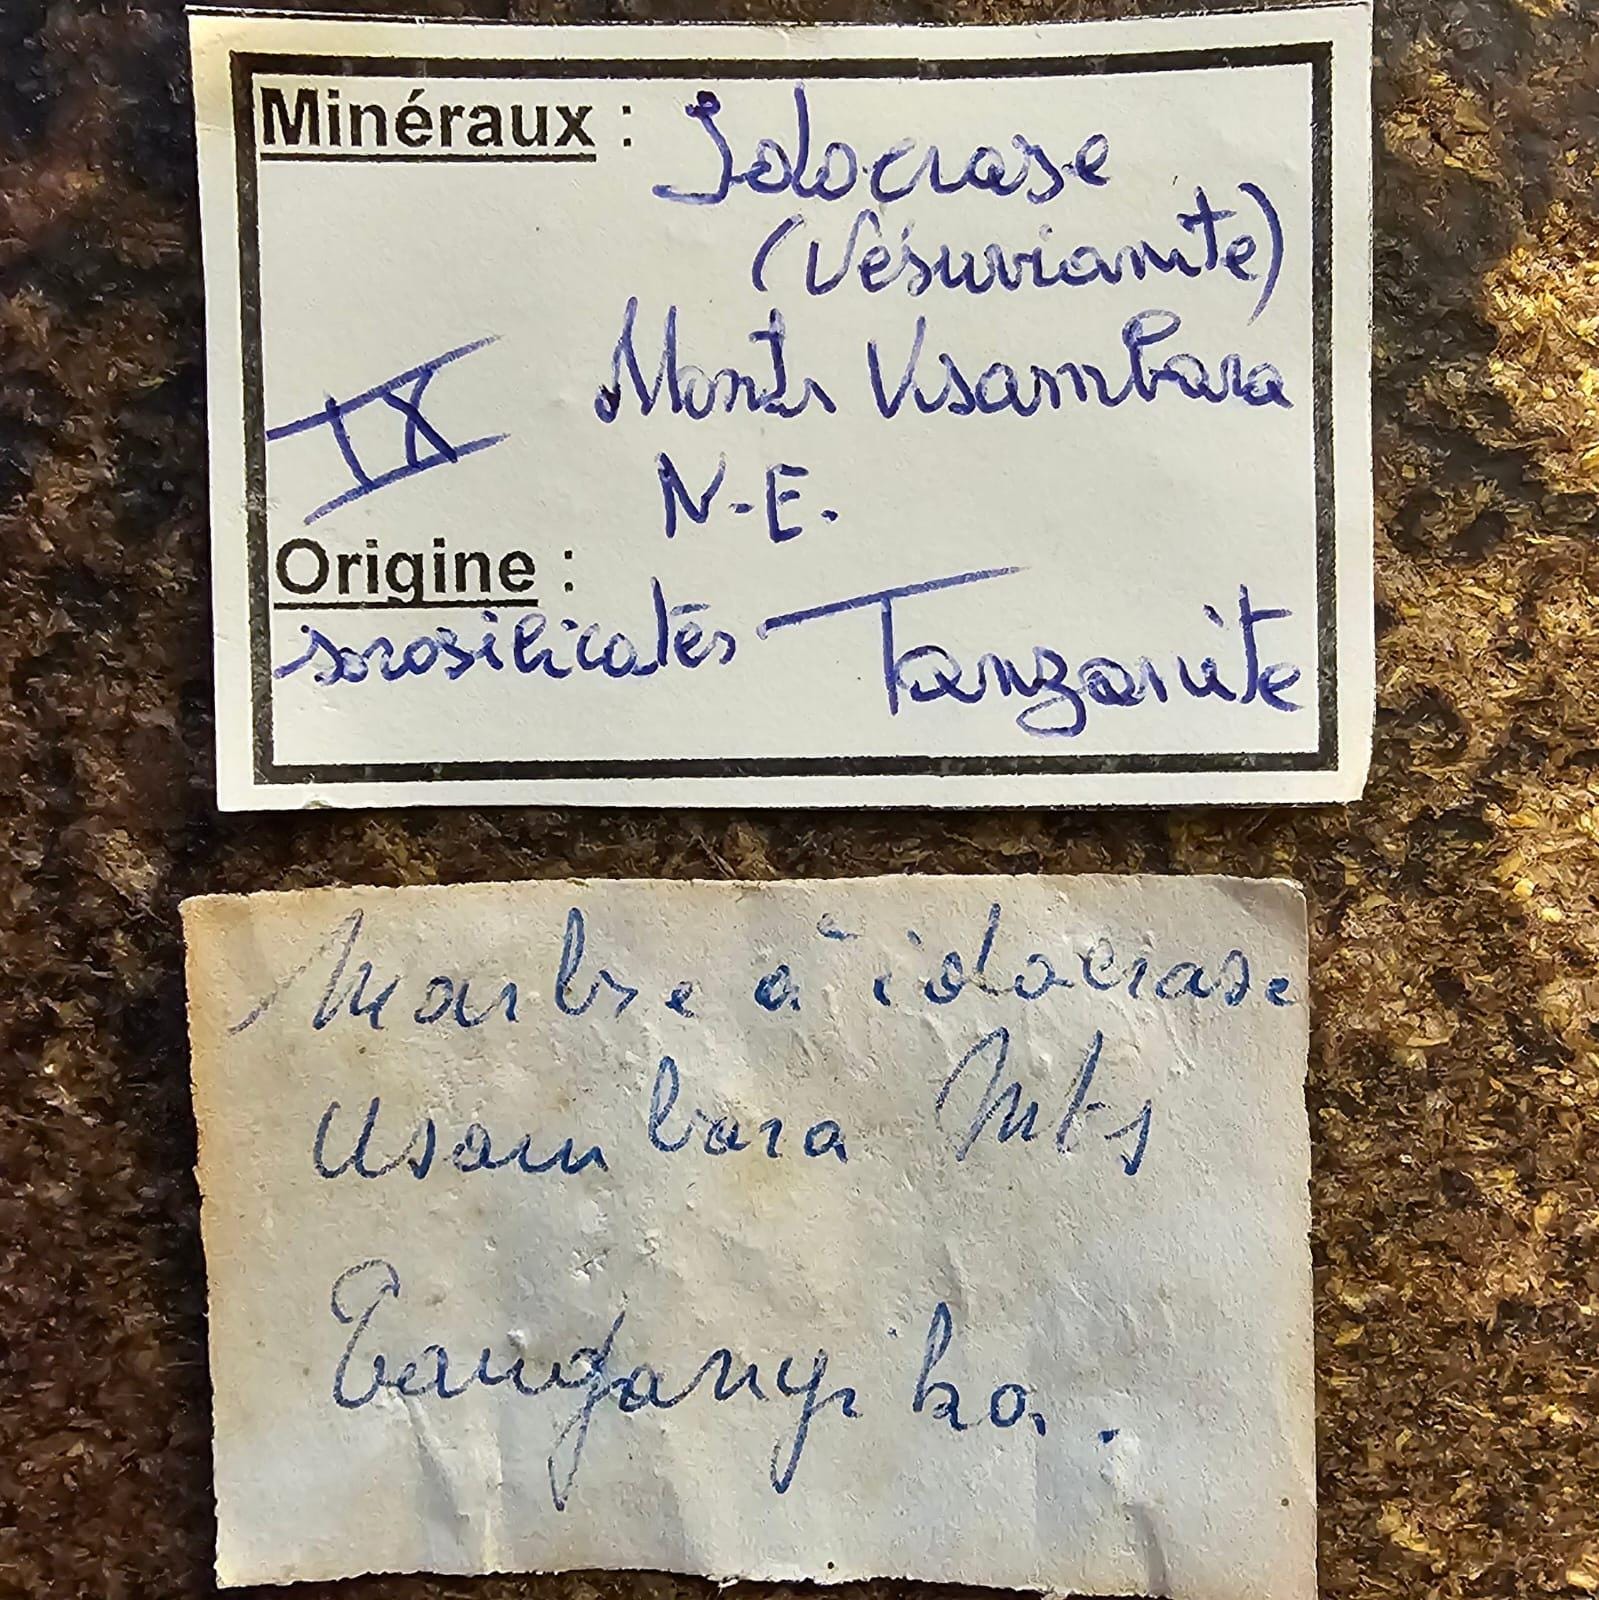 Minéraux : Idocrase
(Vésuvianite)
IX Monts Usambara
N.-E.
Origine :
sorosilicates - Tanzanite
Marbre à idocrase
Usambara Mts
Tanganyika.